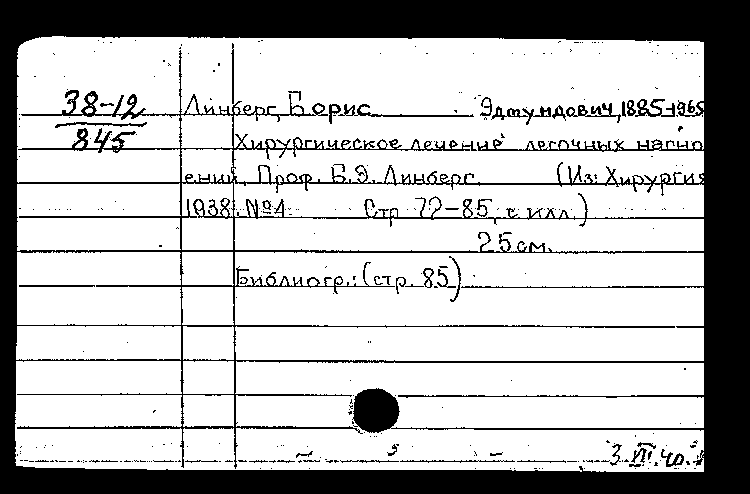 38-12
845
Линберг, Борис Эдмундович, 1885-1965
Хирургическое лечение легочных нагно
ений. Проф. Б.Э. Линберг. (Из: Хирургия
1938. №4. Стр. 72-85, с илл.)
25 см.
Библиогр.: (стр. 85)
3.VIII.40.